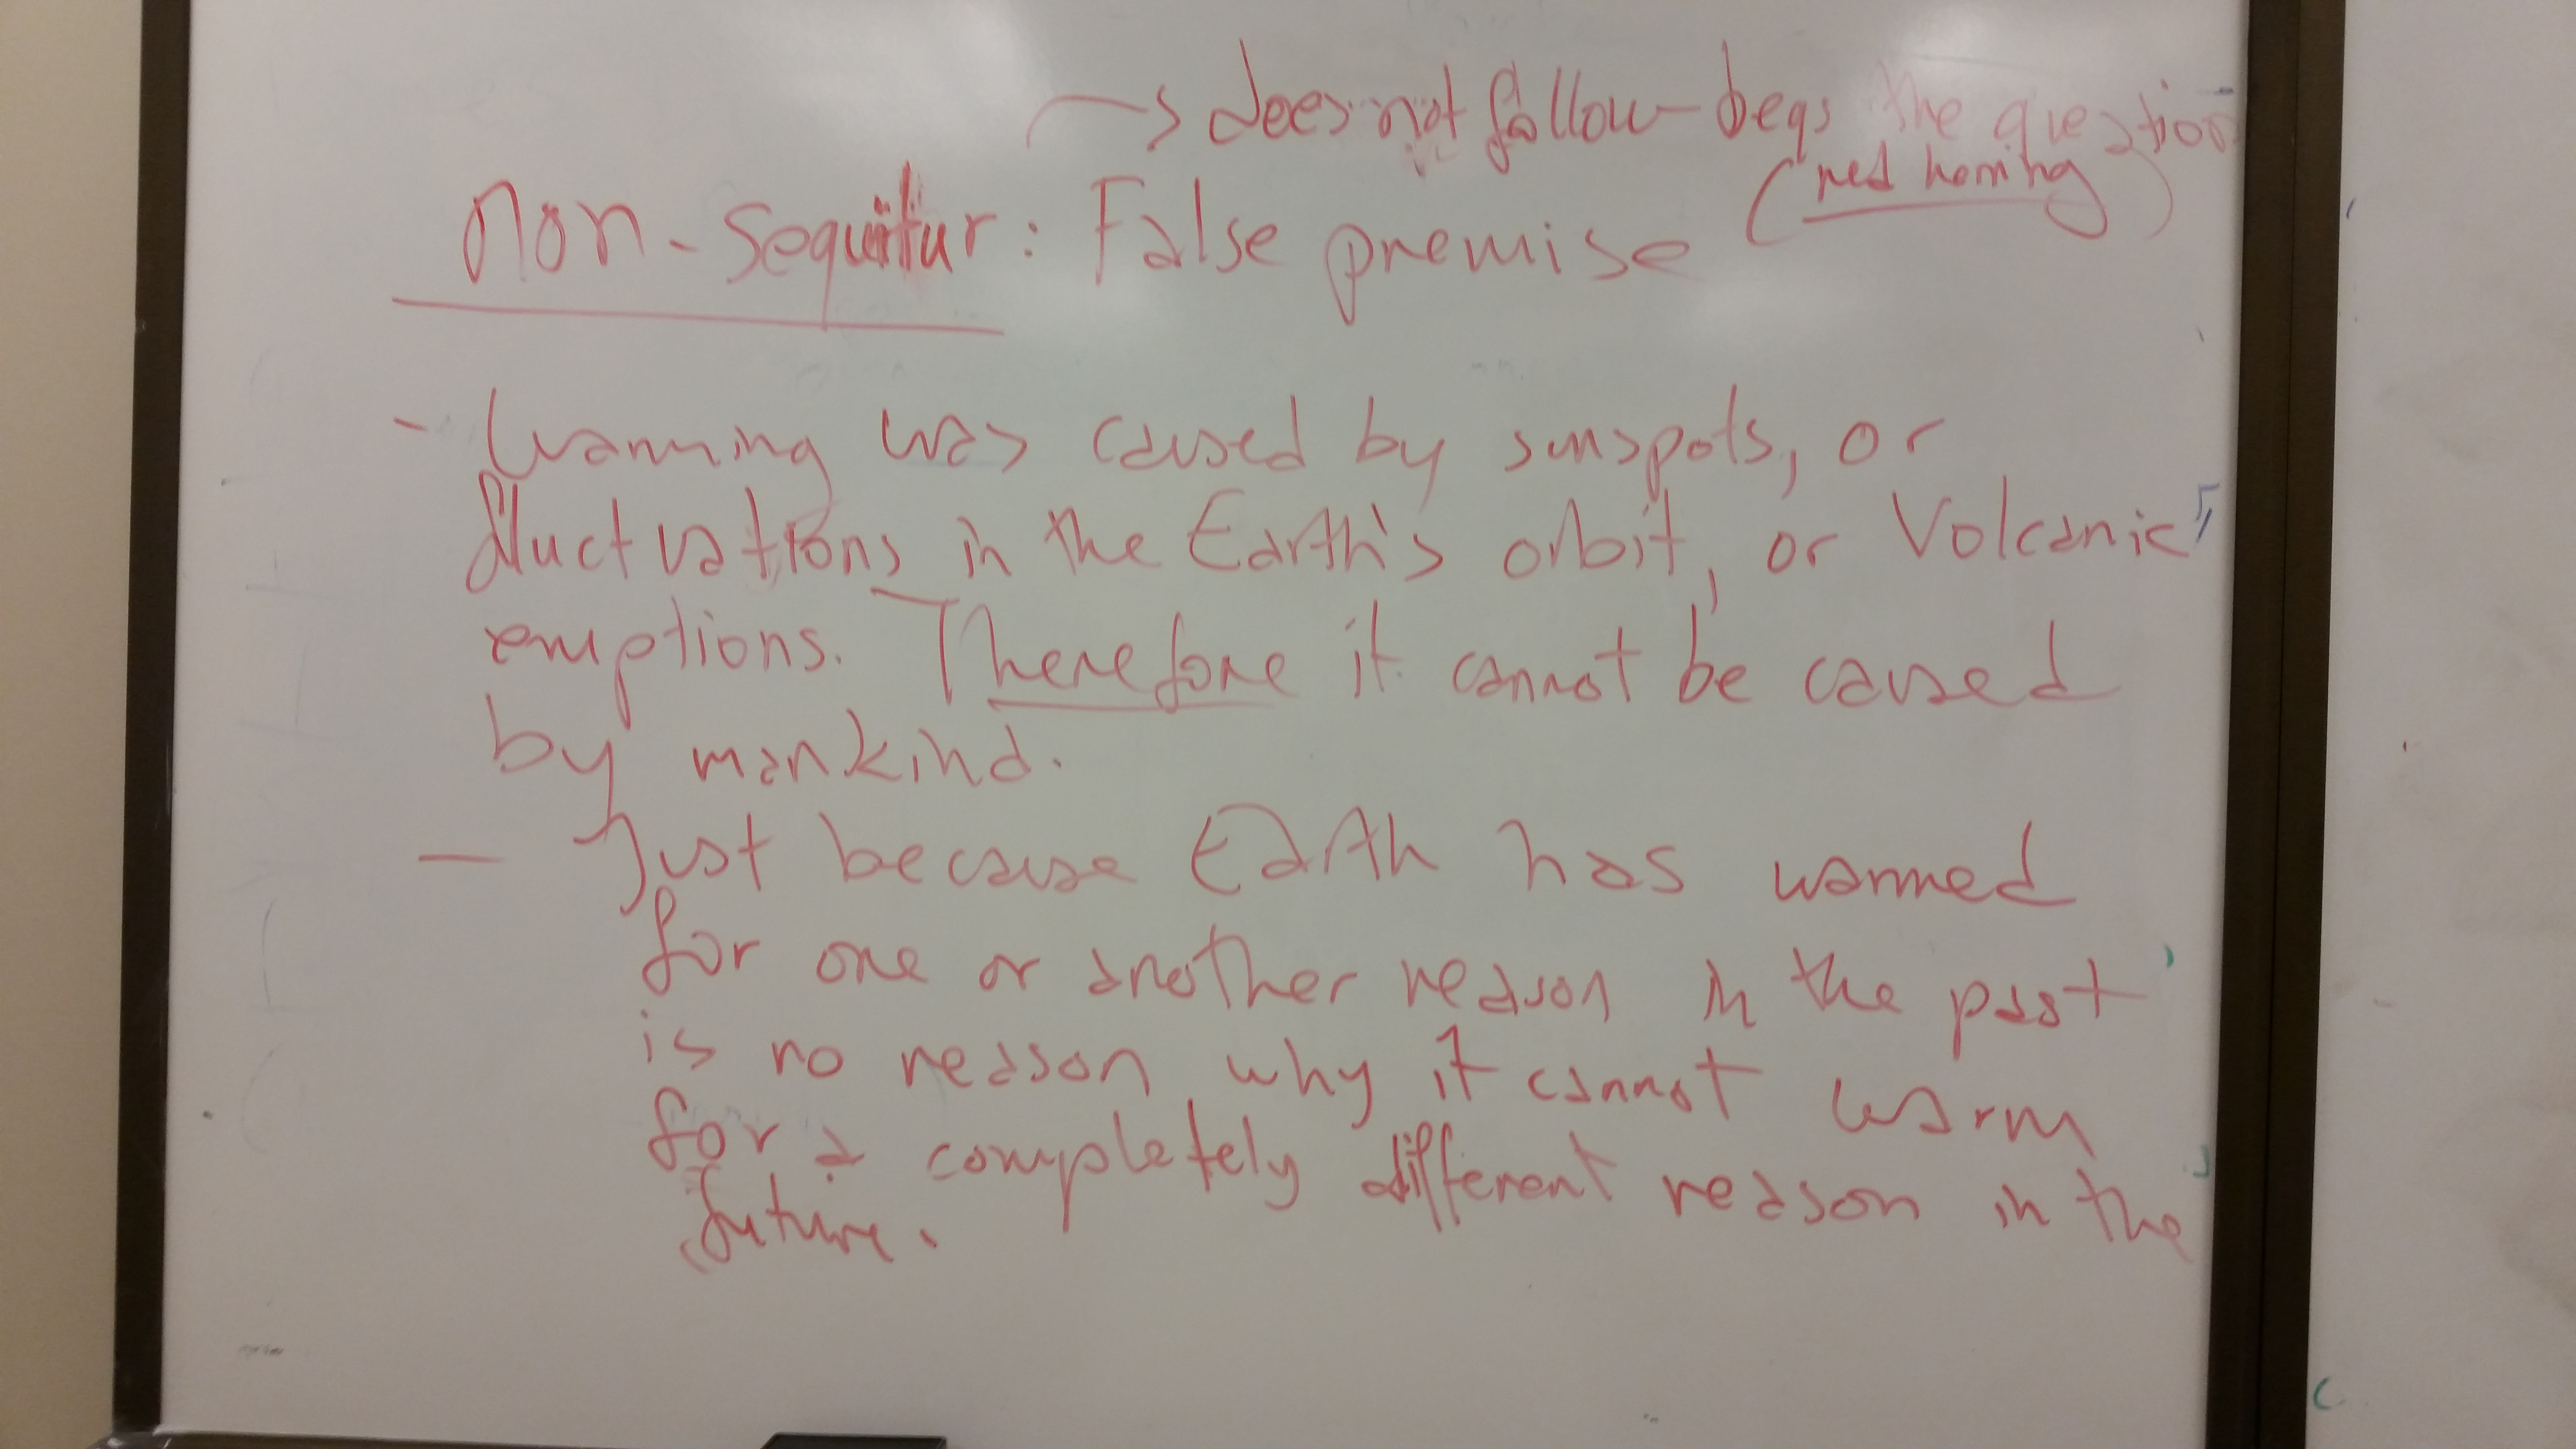 → does not follow - begs the question
(red herring)
non-sequitur: False premise
- Warming was caused by sunspots, or
fluctuations in the Earth's orbit, or Volcanic
eruptions. Therefore it cannot be caused
by mankind.
- Just because Earth has warmed
for one or another reason in the past
is no reason why it cannot warm
for a completely different reason in the
future.